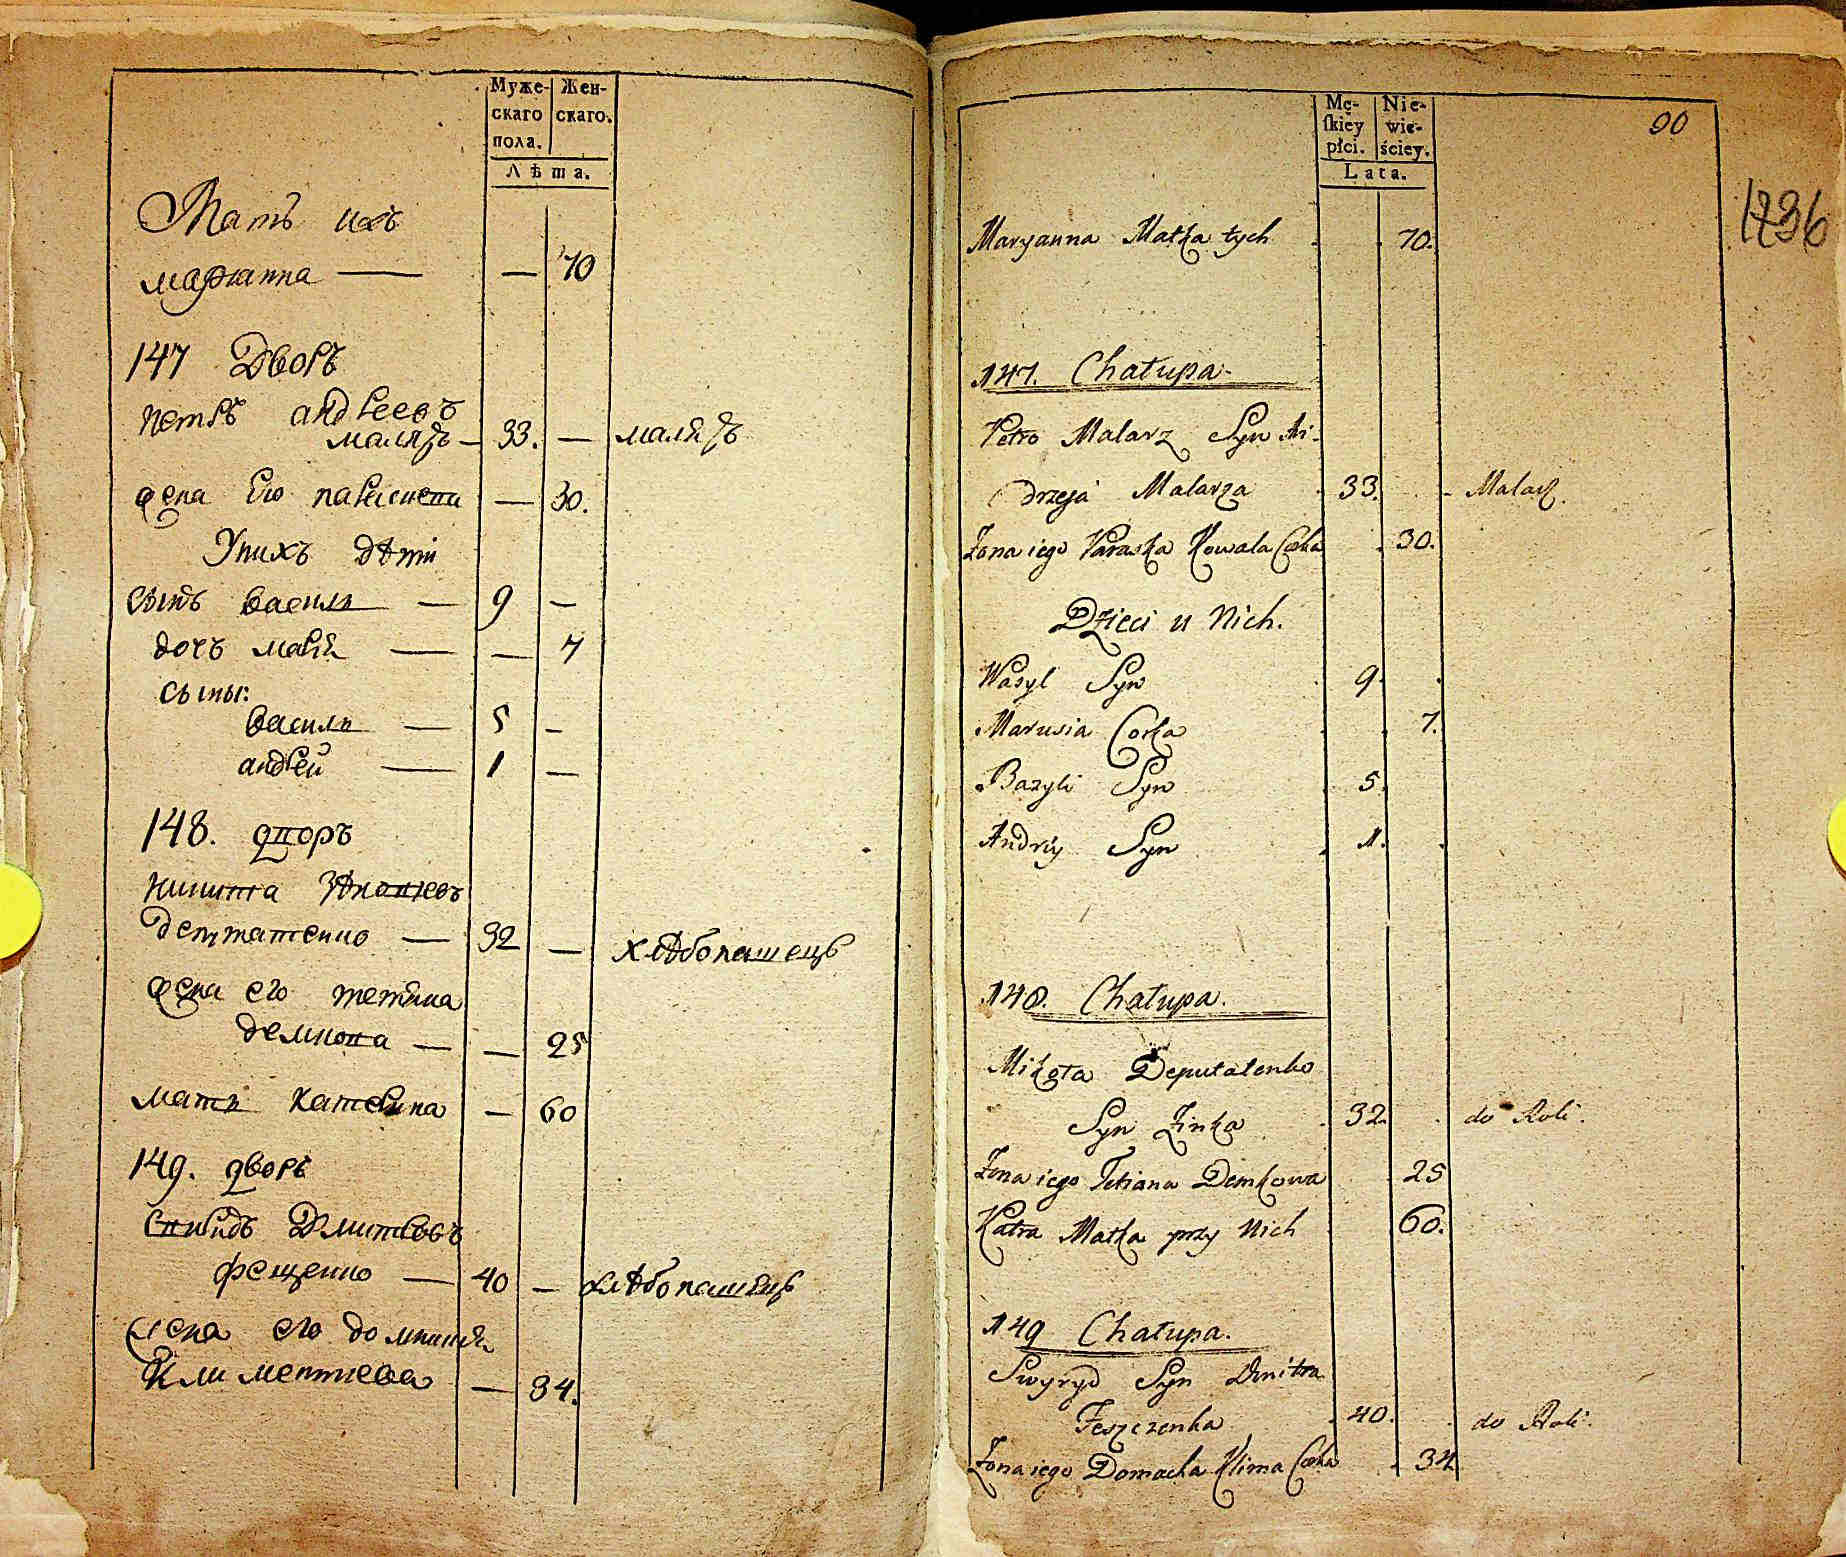 Муже- Жен-
скаго скаго.
пола.
Лѣта.
Мать ихъ
марꙗнна — — 70
147 Дворъ
петръ андреевъ
маляръ — 33. — маляръ
жена его параскепа — 30.
У нихъ дѣти
сынъ василь — 9 —
дочь марія — — 7
сыны:
василь — 5 —
андрей — 1 —
148. дворъ
никита
депутатенко — 32 — хлѣбопашецъ
жена его тетяна
демкова — — 25
мать катерина — 60
149. дворъ
Спиридъ Дмитровъ
фещенко — 40 — хлѣбопашецъ
жена его домникія
Климентиева — 34.
Mę- Nie-
ſkiey wie-
płci. ściey.
Lata.
90
1236
Maryanna Matka tych 70.
147. Chałupa
Petro Malarz Syn An-
drzeja Malarza 33. Malarz.
Żona iego Paraska Kowala Corka 30.
Dzieci u Nich.
Wasyl Syn 9.
Marusia Corka 7.
Bazyli Syn 5.
Andriy Syn 1.
148. Chałupa.
Mikyta Deputatenko
Syn Zinka 32. do Roli.
Żona iego Tetiana Demkowa 25
Katra Matka przy Nich 60.
149 Chałupa.
Swyryd Syn Dmitra
Feszczenka 40. do Roli.
Żona iego Domacha Klima Corka 34